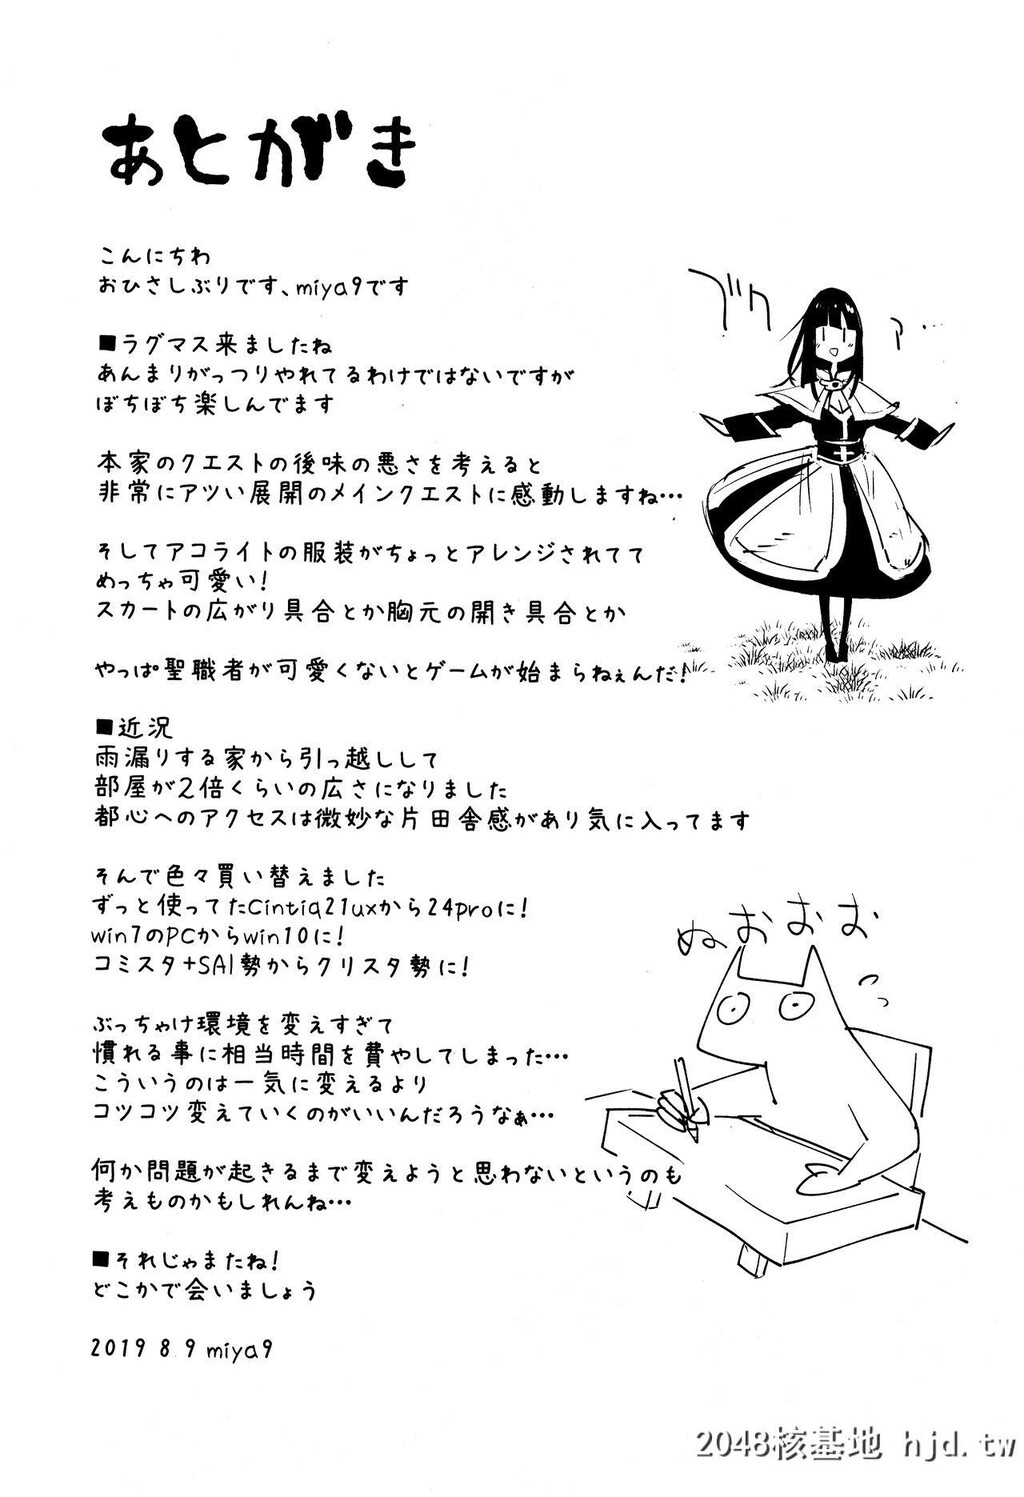 あとがき
こんにちわ
おひさしぶりです、miya9です
■ラグマス来ましたね
あんまりがっつりやれてるわけではないですが
ぼちぼち楽しんでます
本家のクエストの後味の悪さを考えると
非常にアツい展開のメインクエストに感動しますね…
そしてアコライトの服装がちょっとアレンジされてて
めっちゃ可愛い!
スカートの広がり具合とか胸元の開き具合とか
やっぱ聖職者が可愛くないとゲームが始まらねぇんだ!
■近況
雨漏りする家から引っ越しして
部屋が2倍くらいの広さになりました
都心へのアクセスは微妙な片田舎感があり気に入ってます
そんで色々買い替えました
ずっと使ってたCintiq21uxから24proに!
win7のPCからwin10に!
コミスタ+SAI勢からクリスタ勢に!
ぶっちゃけ環境を変えすぎて
慣れる事に相当時間を費やしてしまった…
こういうのは一気に変えるより
コツコツ変えていくのがいいんだろうなぁ…
何か問題が起きるまで変えようと思わないというのも
考えものかもしれんね…
■それじゃまたね!
どこかで会いましょう
2019 8 9 miya9
ブワ
ア…
ぬおおお
2048核基地 hjd.tw